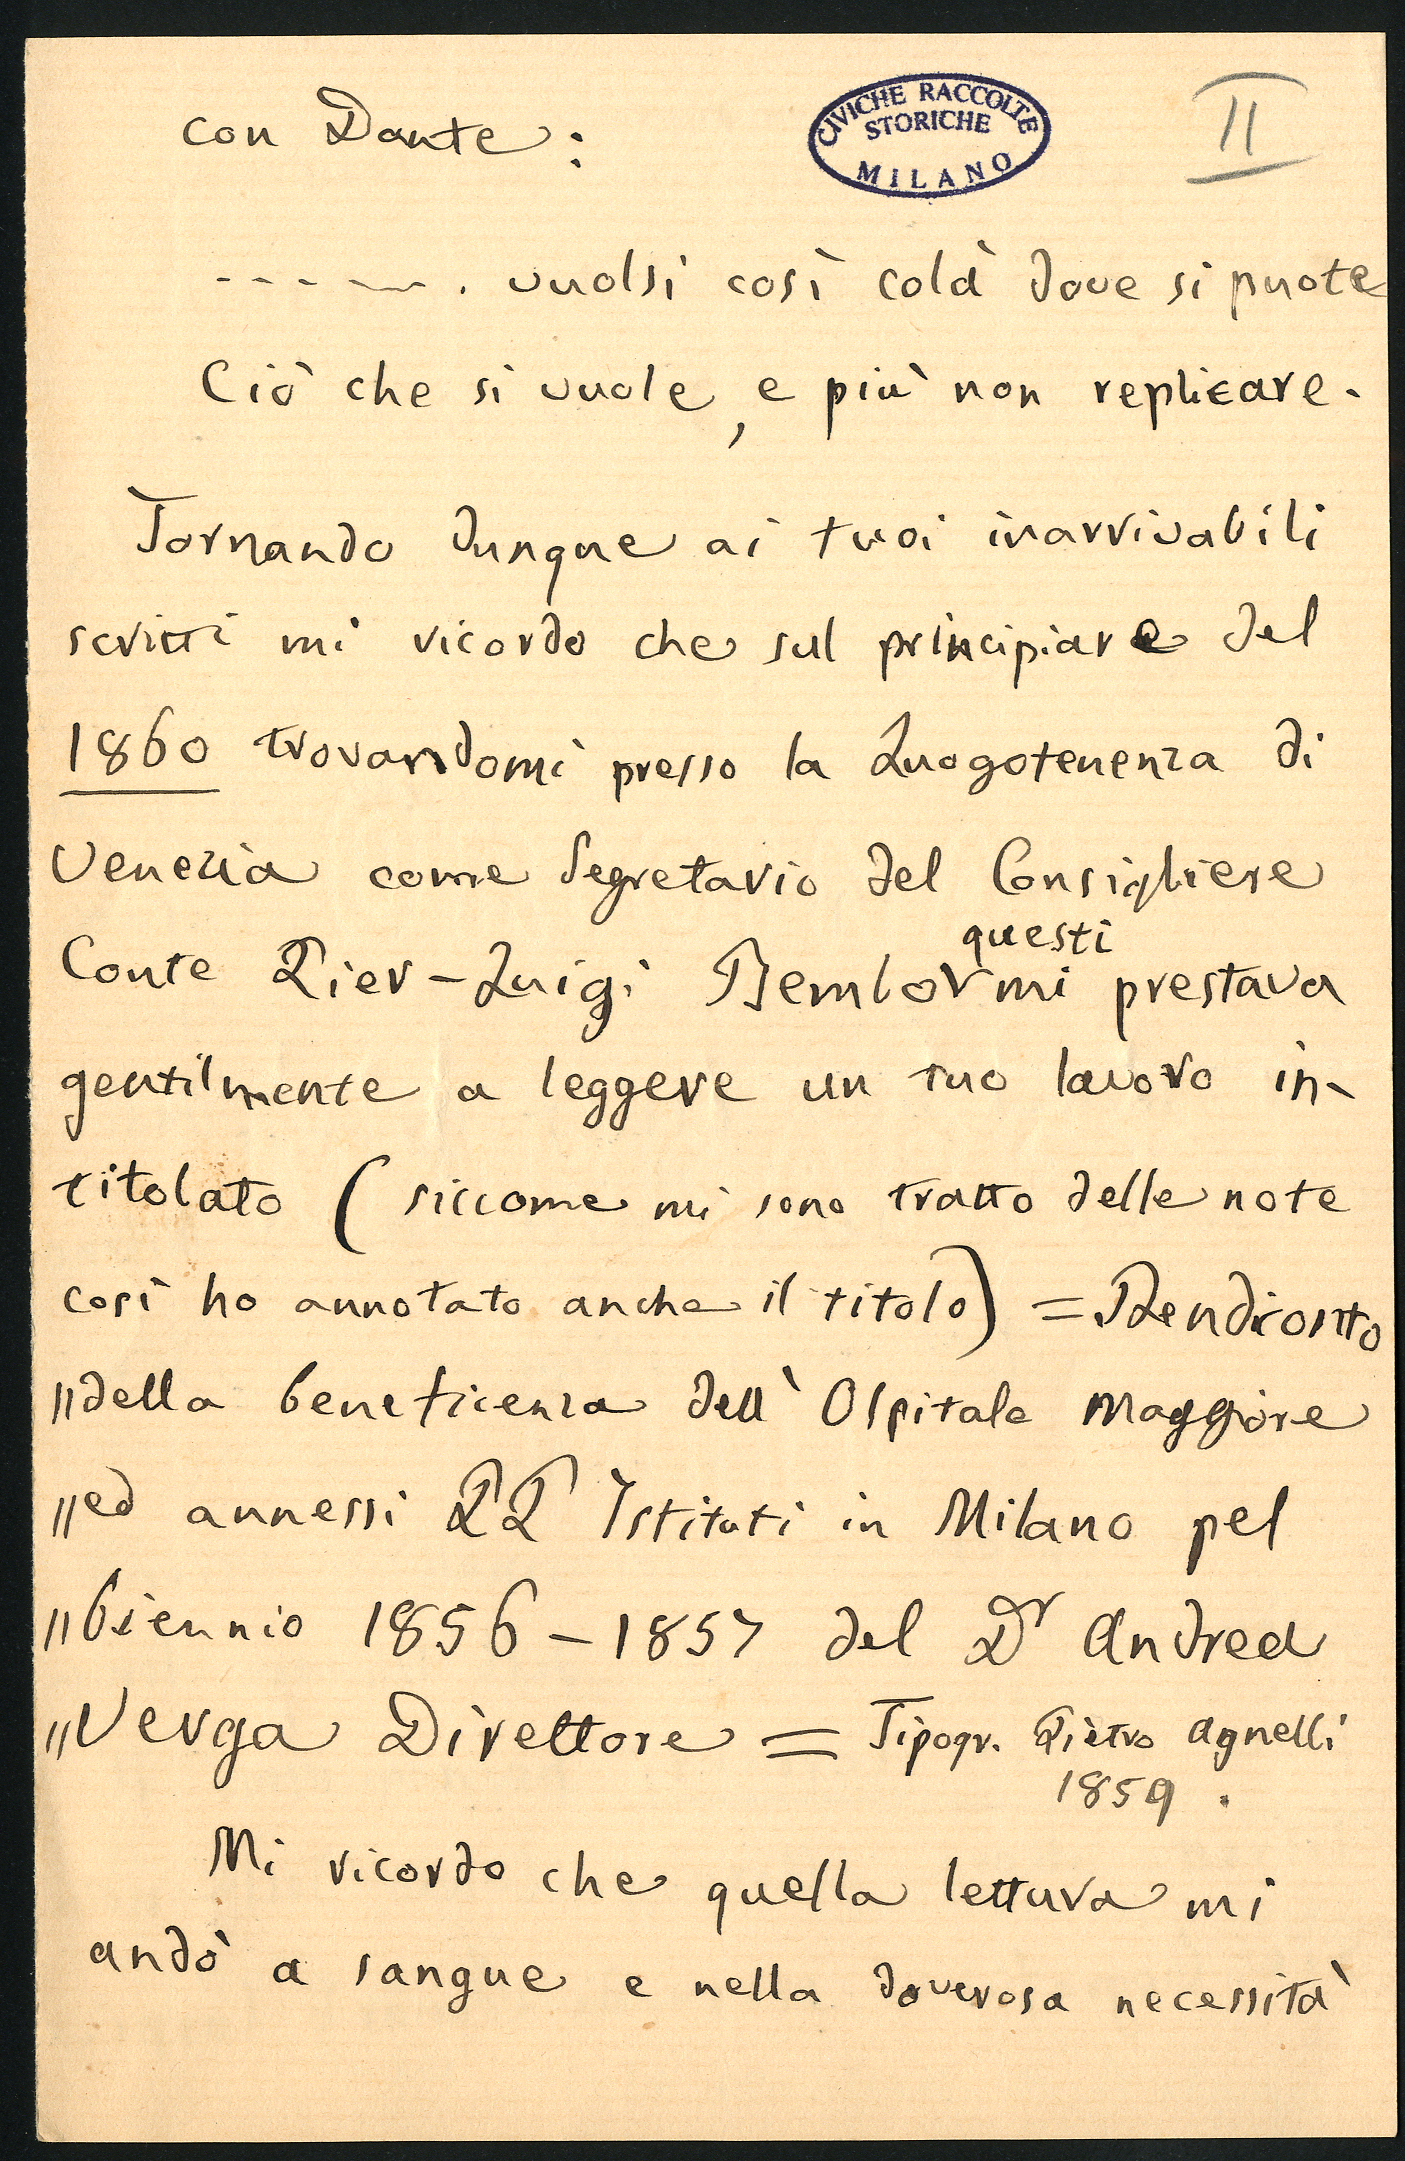 con Dante:
CIVICHE RACCOLTE
STORICHE
MILANO
II
- - - - - - . vuolsi così colà dove si puote
Ciò che si vuole, e più non replicare.
Tornando dunque ai tuoi inarrivabili
scritti mi ricordo che sul principiare del
1860 trovandomi presso la Luogotenenza di
Venezia come Segretario del Consigliere
questi
Conte Pier-Luigi Bembo √ mi prestava
gentilmente a leggere un tuo lavoro in-
titolato ( siccome mi sono tratto delle note
così ho annotato anche il titolo) = Rendiconto
"della beneficenza dell' Ospitale Maggiore
"ed annessi PP Istituti in Milano pel
"biennio 1856 - 1857 del Dr Andrea
"Verga Direttore = Tipogr. Pietro Agnelli
1859 .
Mi ricordo che quella lettura mi
andò a sangue e nella doverosa necessità